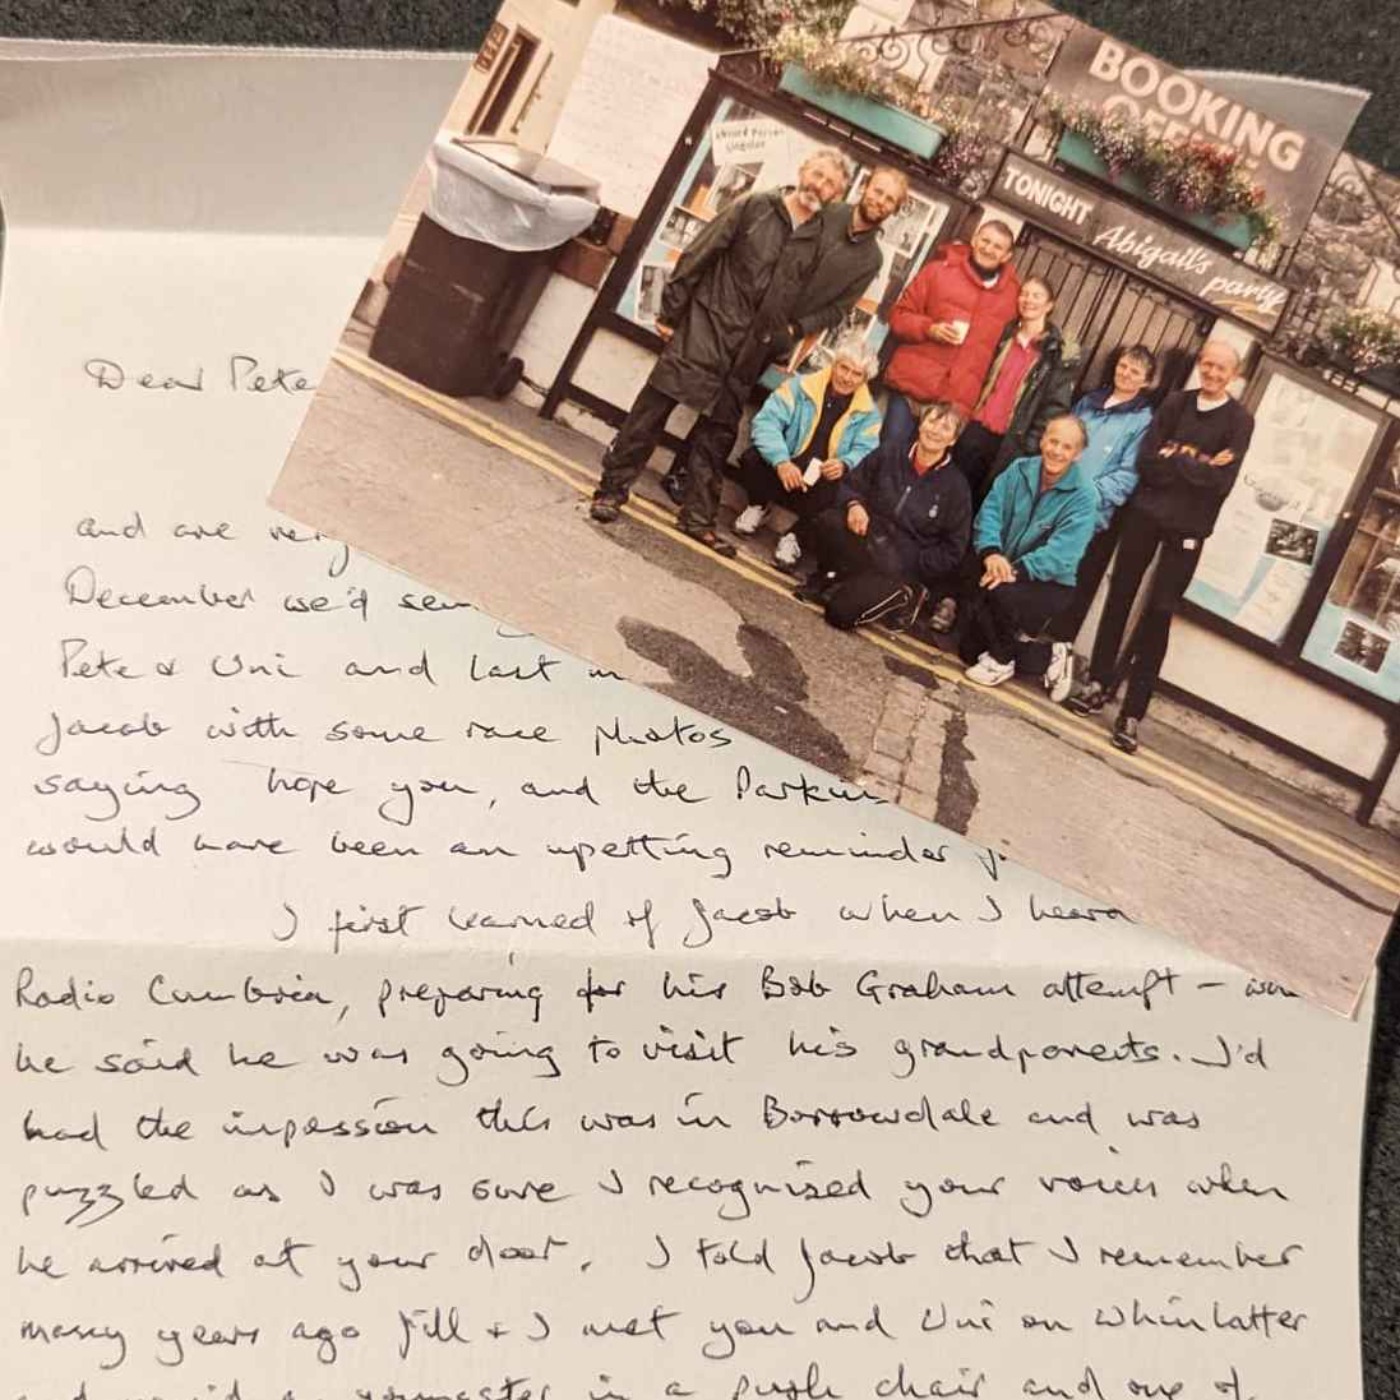 BOOKING
OFFICE
TONIGHT
Abigail's
party
Dear Pete
and are very
December we'd sen
Pete & Uni and last
Jacob with some race photos
saying hope you, and the Parkin
would have been an upsetting reminder
I first learned of Jacob when I heard
Radio Cumbria, preparing for his Bob Graham attempt –
he said he was going to visit his grandparents. I'd
had the impession this was in Borrowdale and was
puzzled as I was sure I recognised your voices when
he arrived at your door. I told Jacob that I remember
many years ago Jill & I met you and Uni on Whinlatter
youngster in a push chair and one of